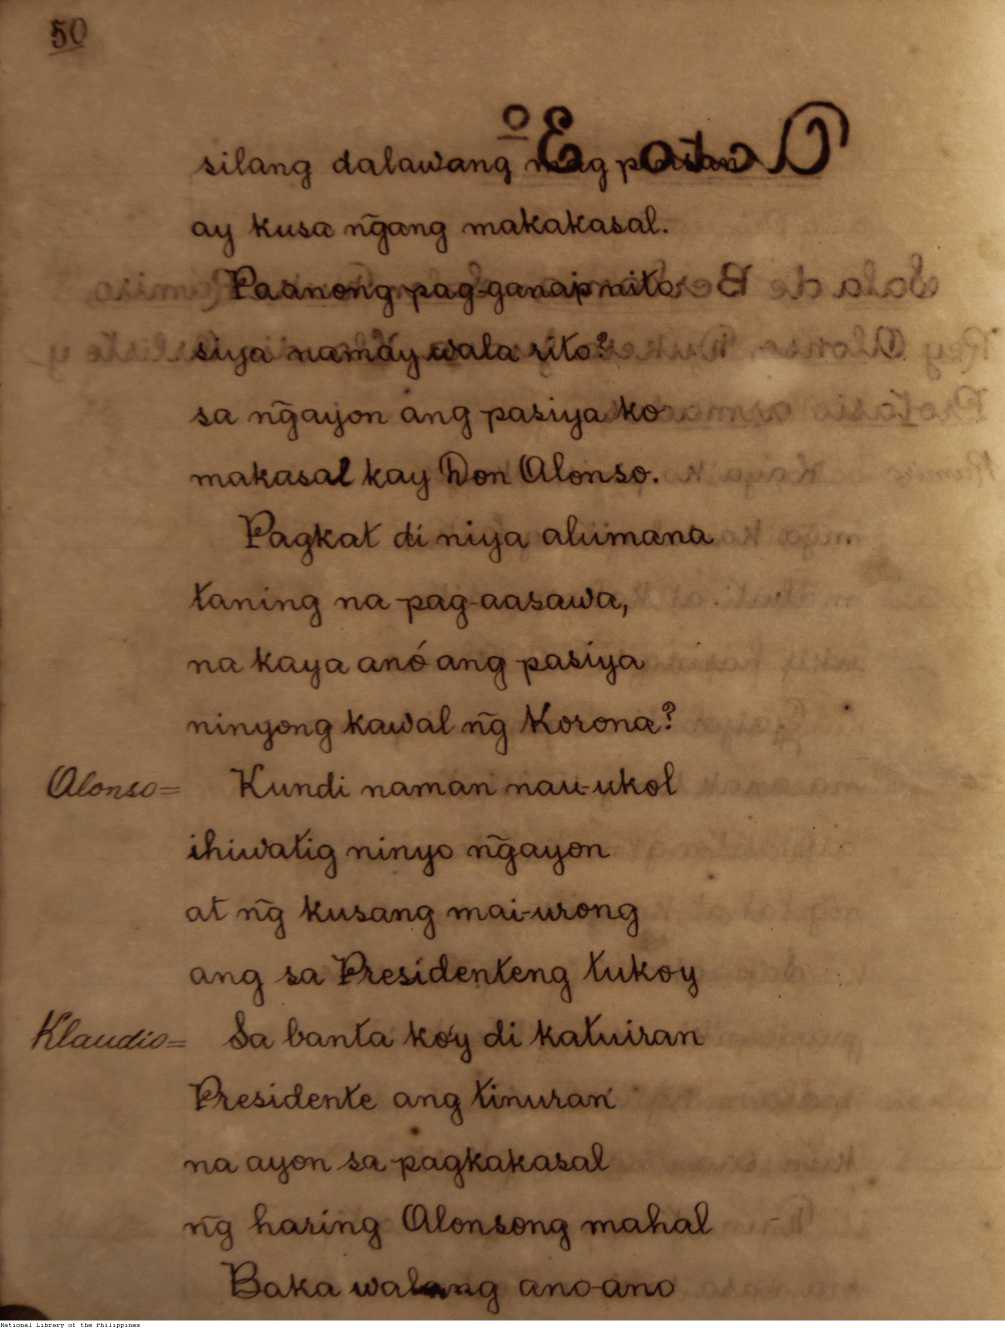 50
silang dalawang mag pinsan
ay kusa ñgang makakasal.
Paanong pag-ganap nito
siya namáy wala rito?
sa ñgayon ang pasiya ko
makasal kay Don Alonso.
Pagkat di niya alumana
taning na pag-aasawa,
na kaya anó ang pasiya
ninyong kawal ñg Korona?
Alonso= Kundi naman nau-ukol
ihiwatig ninyo ñgayon
at ñg kusang mai-urong
ang sa Presidenteng tukoy
Klaudio= Sa banta ko'y di katuiran
Presidente ang tinuran
na ayon sa pagkakasal
ñg haring Alonsong mahal
Baka walang ano-ano
National Library of the Philippines